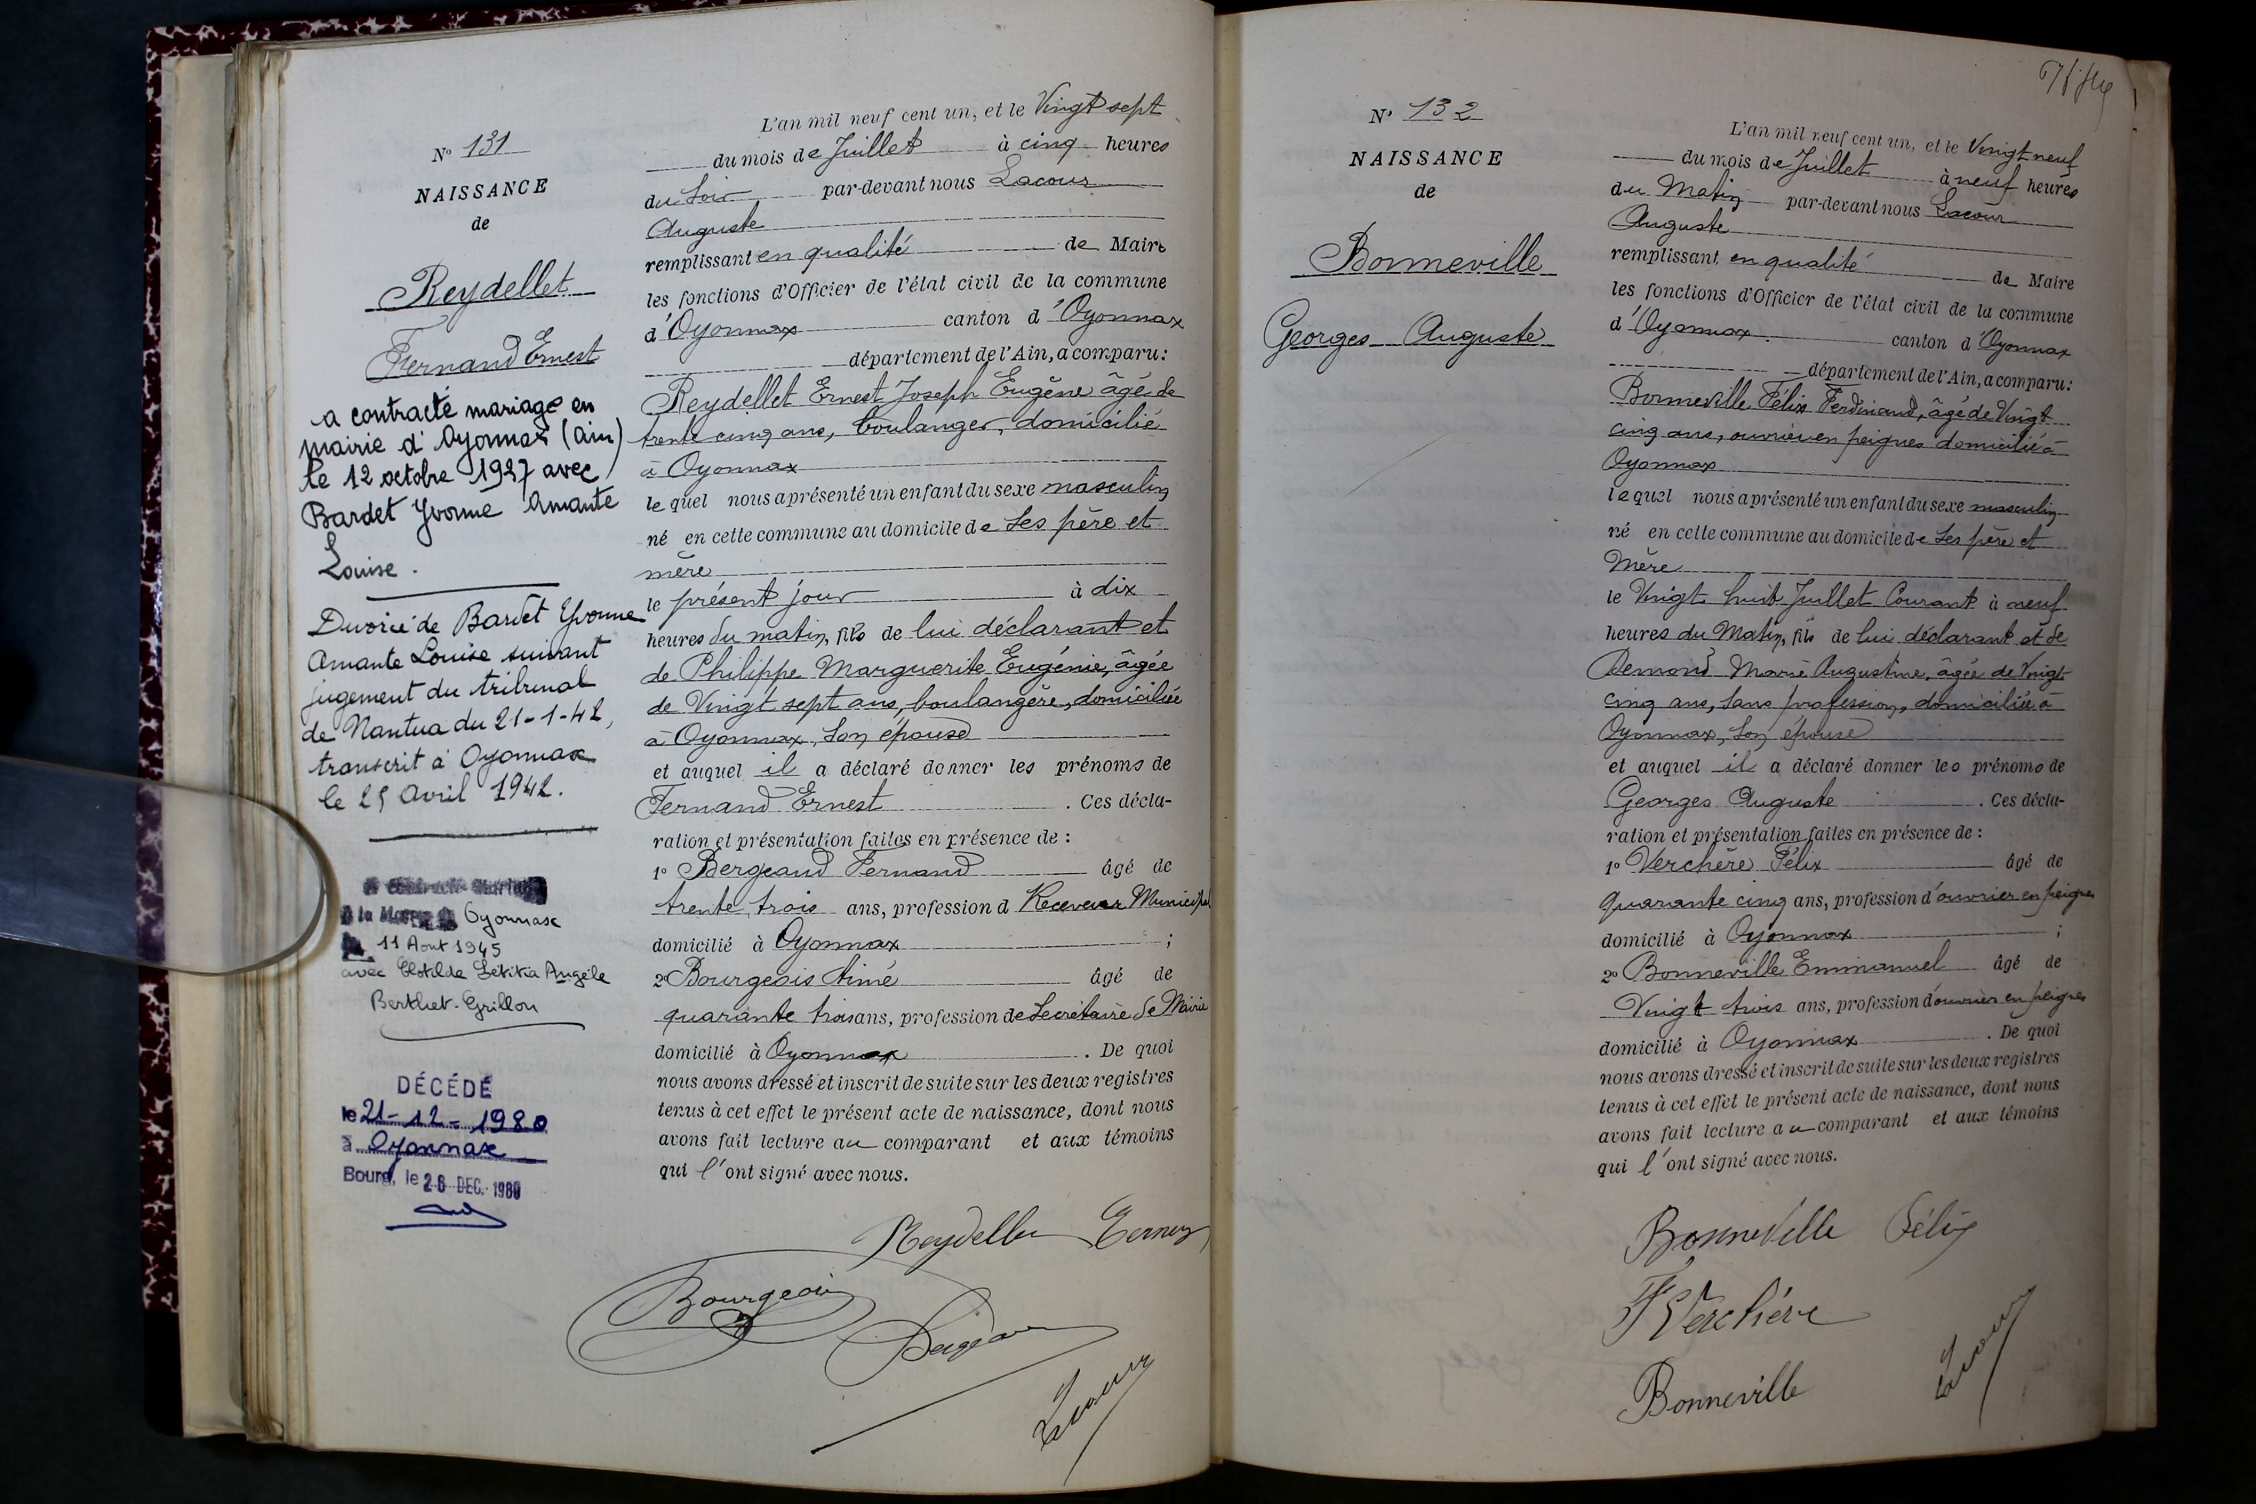 N° 131
NAISSANCE
de
Reydellet
Fernand Ernest
a contracté mariage en
mairie d'Oyonnax (Ain)
le 12 octobre 1927 avec
Bardet Yvonne Amante
Louise.
Divorcé de Bardet Yvonne
Amante Louise suivant
jugement du tribunal
de Nantua du 21-1-42,
transcrit à Oyonnax
le 25 Avril 1942.
à la Mairie Oyonnax
11 Aout 1945
avec Clotilde Létitia Angèle
Berthet-Grillon
DÉCÉDÉ
le 21-12-1980
à Oyonnax
Bourg, le 26 DEC. 1980
L'an mil neuf cent un, et le Vingt sept
du mois de Juillet à cinq heures
du Soir par-devant nous Lacour
Auguste
remplissant en qualité de Maire
les fonctions d'Officier de l'état civil de la commune
d'Oyonnax canton d'Oyonnax
département de l'Ain, a comparu:
Reydellet Ernest Joseph Eugène âgé de
trente cinq ans, boulanger, domicilié
à Oyonnax
le quel nous a présenté un enfant du sexe masculin
né en cette commune au domicile de Ses père et
mère
le présent jour à dix
heures du matin, fils de lui déclarant et
de Philippe Marguerite Eugénie, âgée
de Vingt sept ans, boulangère, domiciliée
à Oyonnax, Son épouse
et auquel il a déclaré donner les prénoms de
Fernand Ernest. Ces décla-
ration et présentation faites en présence de:
1° Bergeaud Fernand âgé de
trente trois ans, profession d Receveur Municipal
domicilié à Oyonnax;
2° Bourgeois Aimé âgé de
quarante trois ans, profession de Secrétaire de Mairie
domicilié à Oyonnax. De quoi
nous avons dressé et inscrit de suite sur les deux registres
tenus à cet effet le présent acte de naissance, dont nous
avons fait lecture au comparant et aux témoins
qui l'ont signé avec nous.
Reydellet Ernest
Bourgeois
Lacour
N° 132
NAISSANCE
de
Bonneville
Georges Auguste
L'an mil neuf cent un, et le Vingt neuf
du mois de Juillet à neuf heures
du Matin par-devant nous Lacour
Auguste
remplissant en qualité de Maire
les fonctions d'Officier de l'état civil de la commune
d'Oyonnax canton d'Oyonnax
département de l'Ain, a comparu:
Bonneville Félix Ferdinand, âgé de Vingt
cinq ans, ouvrier en peignes domicilié à
Oyonnax
lequel nous a présenté un enfant du sexe masculin
né en cette commune au domicile de Ses père et
Mère
le Vingt huit Juillet Courant à neuf
heures du Matin, fils de lui déclarant et de
Demond Marie Augustine, âgée de Vingt
cinq ans, Sans profession, domiciliée à
Oyonnax, Son épouse
et auquel il a déclaré donner les prénoms de
Georges Auguste. Ces décla-
ration et présentation faites en présence de:
1° Verchère Félix âgé de
quarante cinq ans, profession d'ouvrier en peignes
domicilié à Oyonnax;
2° Bonneville Emmanuel âgé de
Vingt trois ans, profession d'ouvrier en peignes
domicilié à Oyonnax. De quoi
nous avons dressé et inscrit de suite sur les deux registres
tenus à cet effet le présent acte de naissance, dont nous
avons fait lecture au comparant et aux témoins
qui l'ont signé avec nous.
Bonneville Félix
F Verchère
Lacour
Bonneville